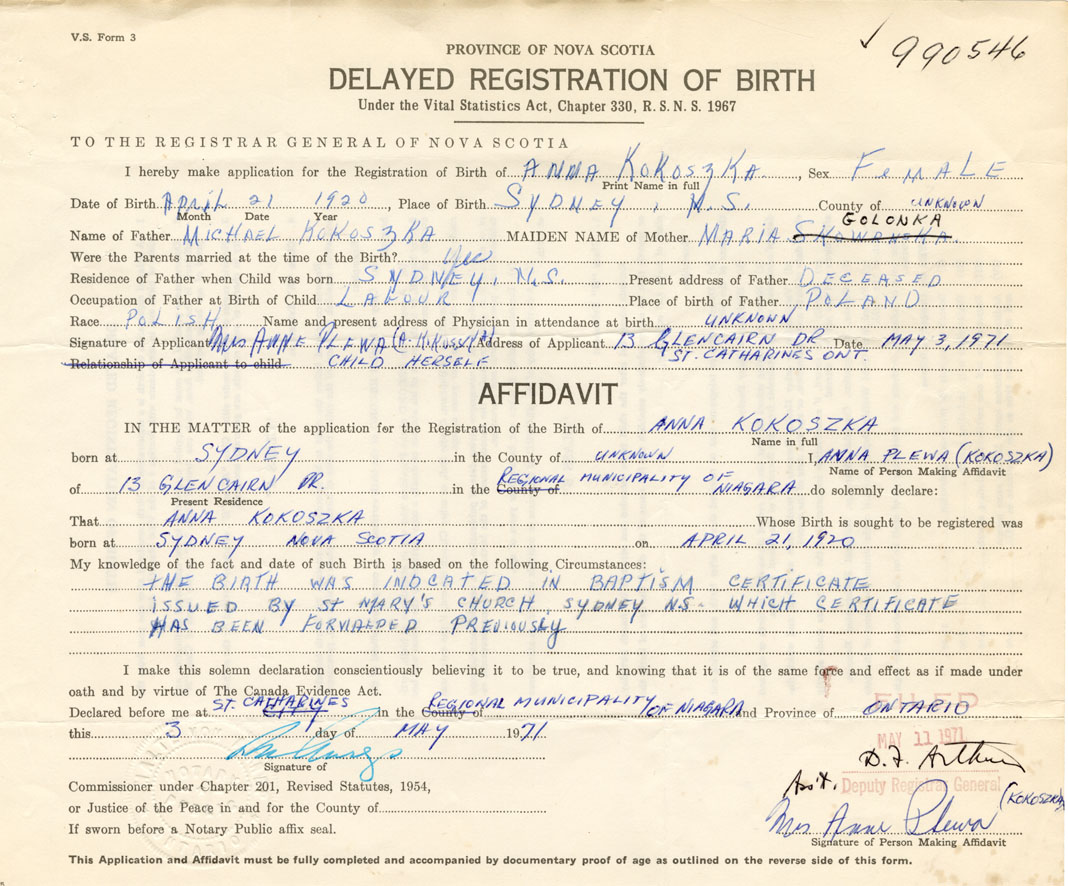 V.S. Form 3
990546
PROVINCE OF NOVA SCOTIA
DELAYED REGISTRATION OF BIRTH
Under the Vital Statistics Act, Chapter 330, R. S. N. S. 1967
TO THE REGISTRAR GENERAL OF NOVA SCOTIA
I hereby make application for the Registration of Birth of ANNA KOKOSZKA, Sex FEMALE
Print Name in full
Date of Birth APRIL 21 1920, Place of Birth SYDNEY, N.S. County of UNKNOWN
Month Date Year
GOLONKA
Name of Father MICHAEL KOKOSZKA MAIDEN NAME of Mother MARIA
Were the Parents married at the time of the Birth? Yes
Residence of Father when Child was born SYDNEY, N.S. Present address of Father DECEASED
Occupation of Father at Birth of Child LABOUR Place of birth of Father POLAND
Race POLISH Name and present address of Physician in attendance at birth UNKNOWN
Signature of Applicant Mrs ANNE PLEWA Address of Applicant 13 GLENCAIRN DR Date MAY 3, 1971
ST. CATHARINES ONT.
Relationship of Applicant to child CHILD HERSELF
AFFIDAVIT
IN THE MATTER of the application for the Registration of the Birth of ANNA KOKOSZKA
Name in full
born at SYDNEY in the County of UNKNOWN I, ANNA PLEWA (KOKOSZKA)
Name of Person Making Affidavit
of 13 GLENCAIRN DR. in the County of REGIONAL MUNICIPALITY OF NIAGARA do solemnly declare:
Present Residence
That ANNA KOKOSZKA Whose Birth is sought to be registered was
born at SYDNEY NOVA SCOTIA on APRIL 21, 1920
My knowledge of the fact and date of such Birth is based on the following Circumstances:
THE BIRTH WAS INDCATED IN BAPTISM CERTIFICATE
ISSUED BY ST MARY'S CHURCH, SYDNEY N.S. WHICH CERTIFICATE
HAS BEEN FORWARDED PREVIOUSLY
I make this solemn declaration conscientiously believing it to be true, and knowing that it is of the same force and effect as if made under
oath and by virtue of The Canada Evidence Act.
Declared before me at ST. CATHARINES CITY in the County of REGIONAL MUNICIPALITY OF NIAGARA and Province of ONTARIO
FILED
this 3 day of MAY 1971
MAY 11 1971
Signature of
D. F. Arthur
Ass't. Deputy Registrar General
Commissioner under Chapter 201, Revised Statutes, 1954,
or Justice of the Peace in and for the County of
If sworn before a Notary Public affix seal.
Mrs Anne Plewa (KOKOSZKA)
Signature of Person Making Affidavit
This Application and Affidavit must be fully completed and accompanied by documentary proof of age as outlined on the reverse side of this form.